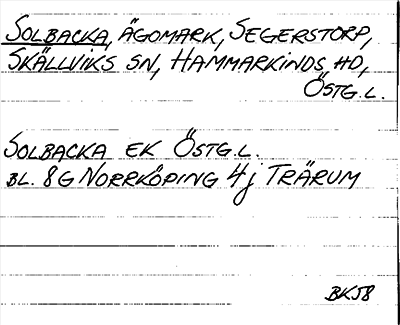 SOLBACKA, ÄGOMARK, SEGERSTORP,
SKÄLLVIKS SN, HAMMARKINDS HD,
ÖSTG.L.
SOLBACKA EK ÖSTG.L.
BL. 8G NORRKÖPING 4j TRÄRUM
BK58